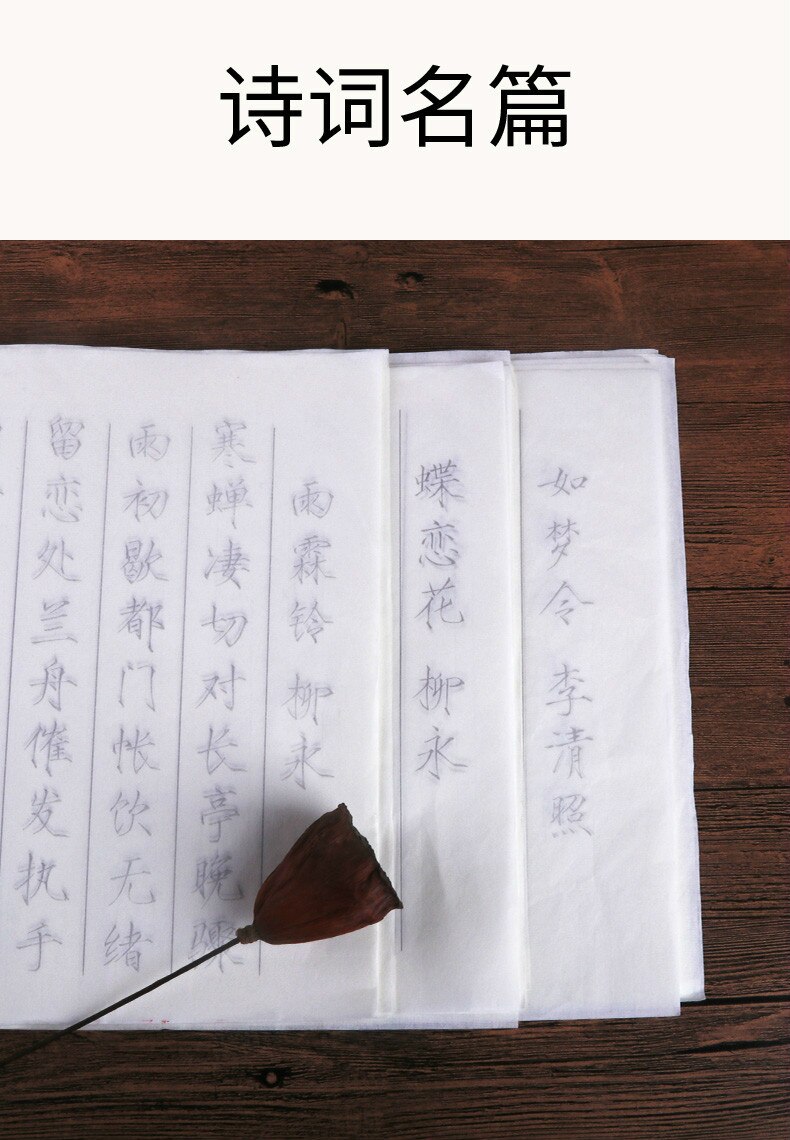 诗词名篇
如梦令 李清照
蝶恋花 柳永
雨霖铃 柳永
寒蝉凄切对长亭晚骤
雨初歇都门帐饮无绪
留恋处兰舟催发执手